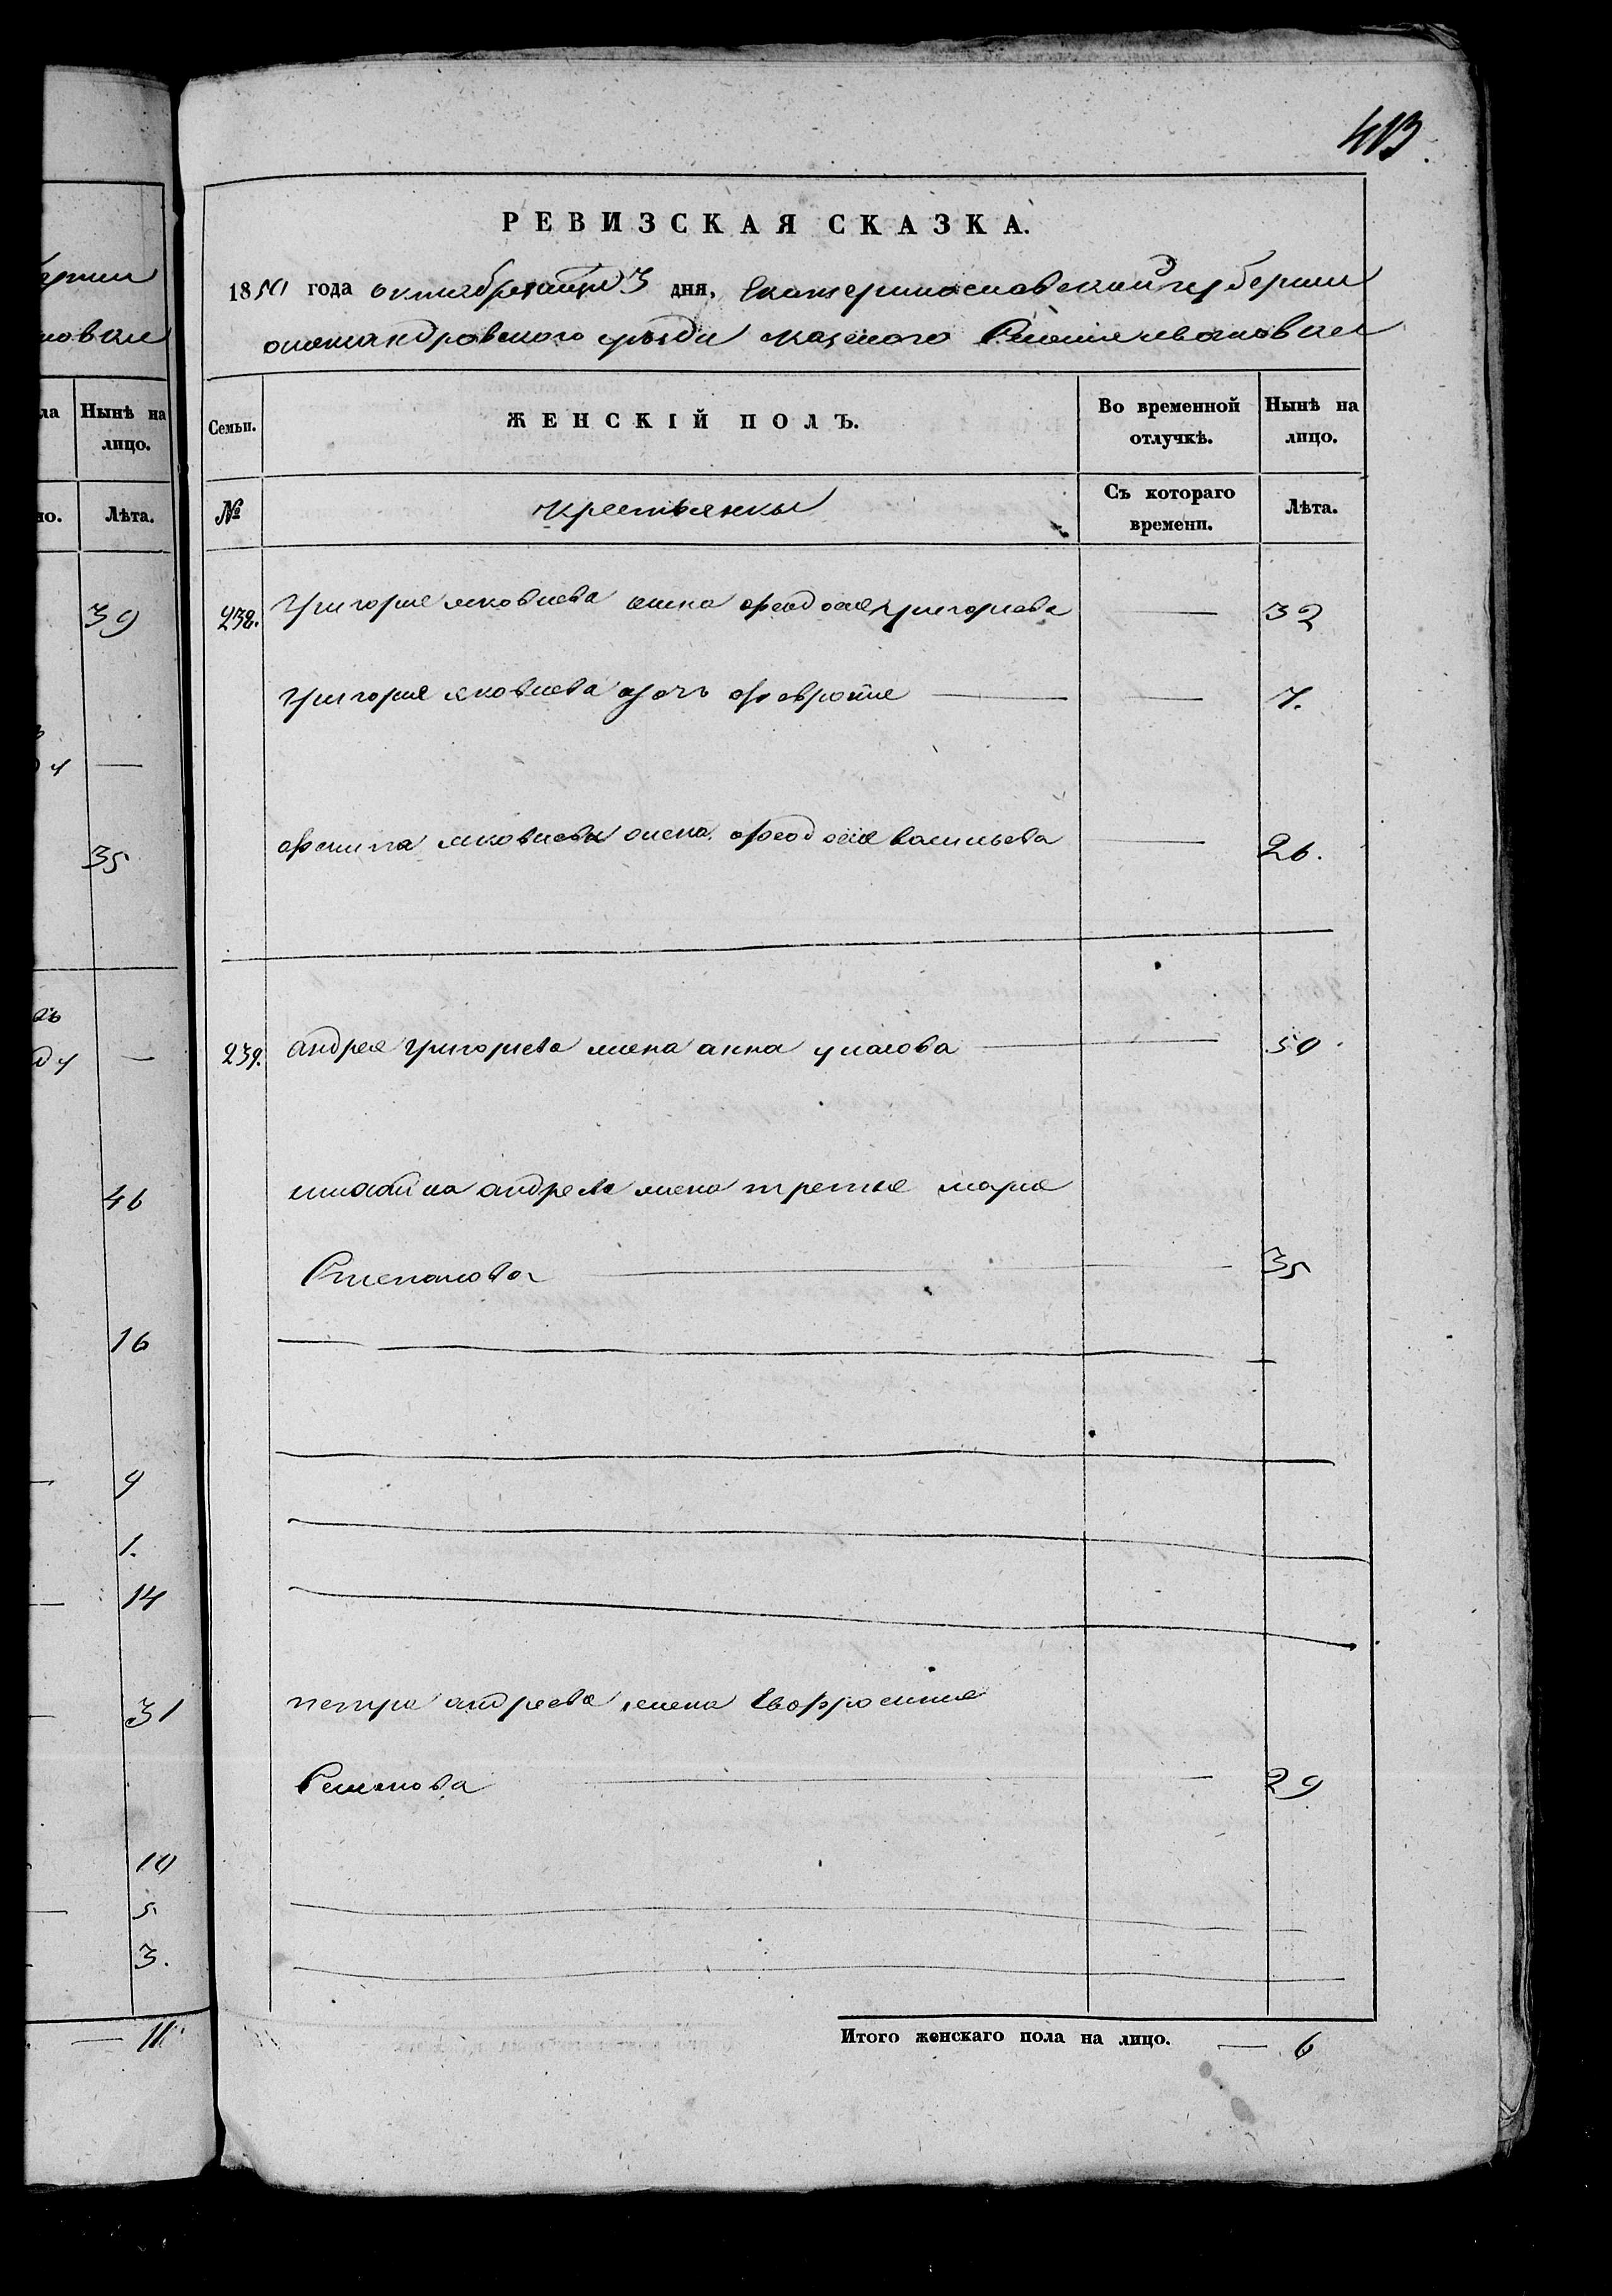 413
РЕВИЗСКАЯ СКАЗКА.
1850 года октября 3 дня, Екатеринославской губернии
александровского уезда казенного Селения
Семьи.
ЖЕНСКІЙ ПОЛЪ.
Во временной отлучкѣ.
Нынѣ на лицо.
№
крестьянки
Съ котораго времени.
Лѣта.
238. Григория яковлева жена феодосия григориева — 32
григория яковлева дочь феврония — — 7.
яковлева жена феодосия васильева — 26.
239. андрея григориева жена анна — 50
андреева жена третья мария
Степанова — 35
петра андреева жена Евфросиния
Семенова — 29
Итого женскаго пола на лицо. — 6
Нынѣ на лицо.
Лѣта.
39
35
46
16
9
1.
14
31
10
5
3.
— 11